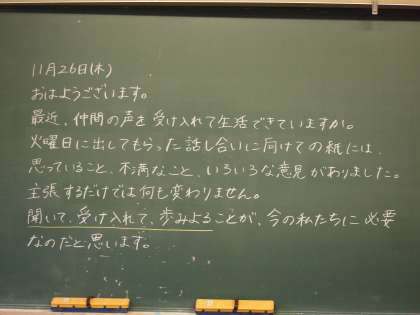 11月26日(木)
おはようございます。
最近、仲間の声を受け入れて生活できていますか。
火曜日に出してもらった話し合いに向けての紙には、
思っていること、不満なこと、いろいろな意見がありました。
主張するだけでは何も変わりません。
聞いて、受け入れて、歩みよることが、今の私たちに必要
なのだと思います。